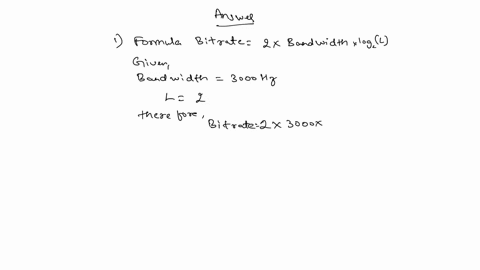 Answer
1) Formula Bitrate = 2 x Bandwidth x log₂(L)
Given,
Bandwidth = 3000Hz
L = 2
therefore,
Bitrate = 2 x 3000x